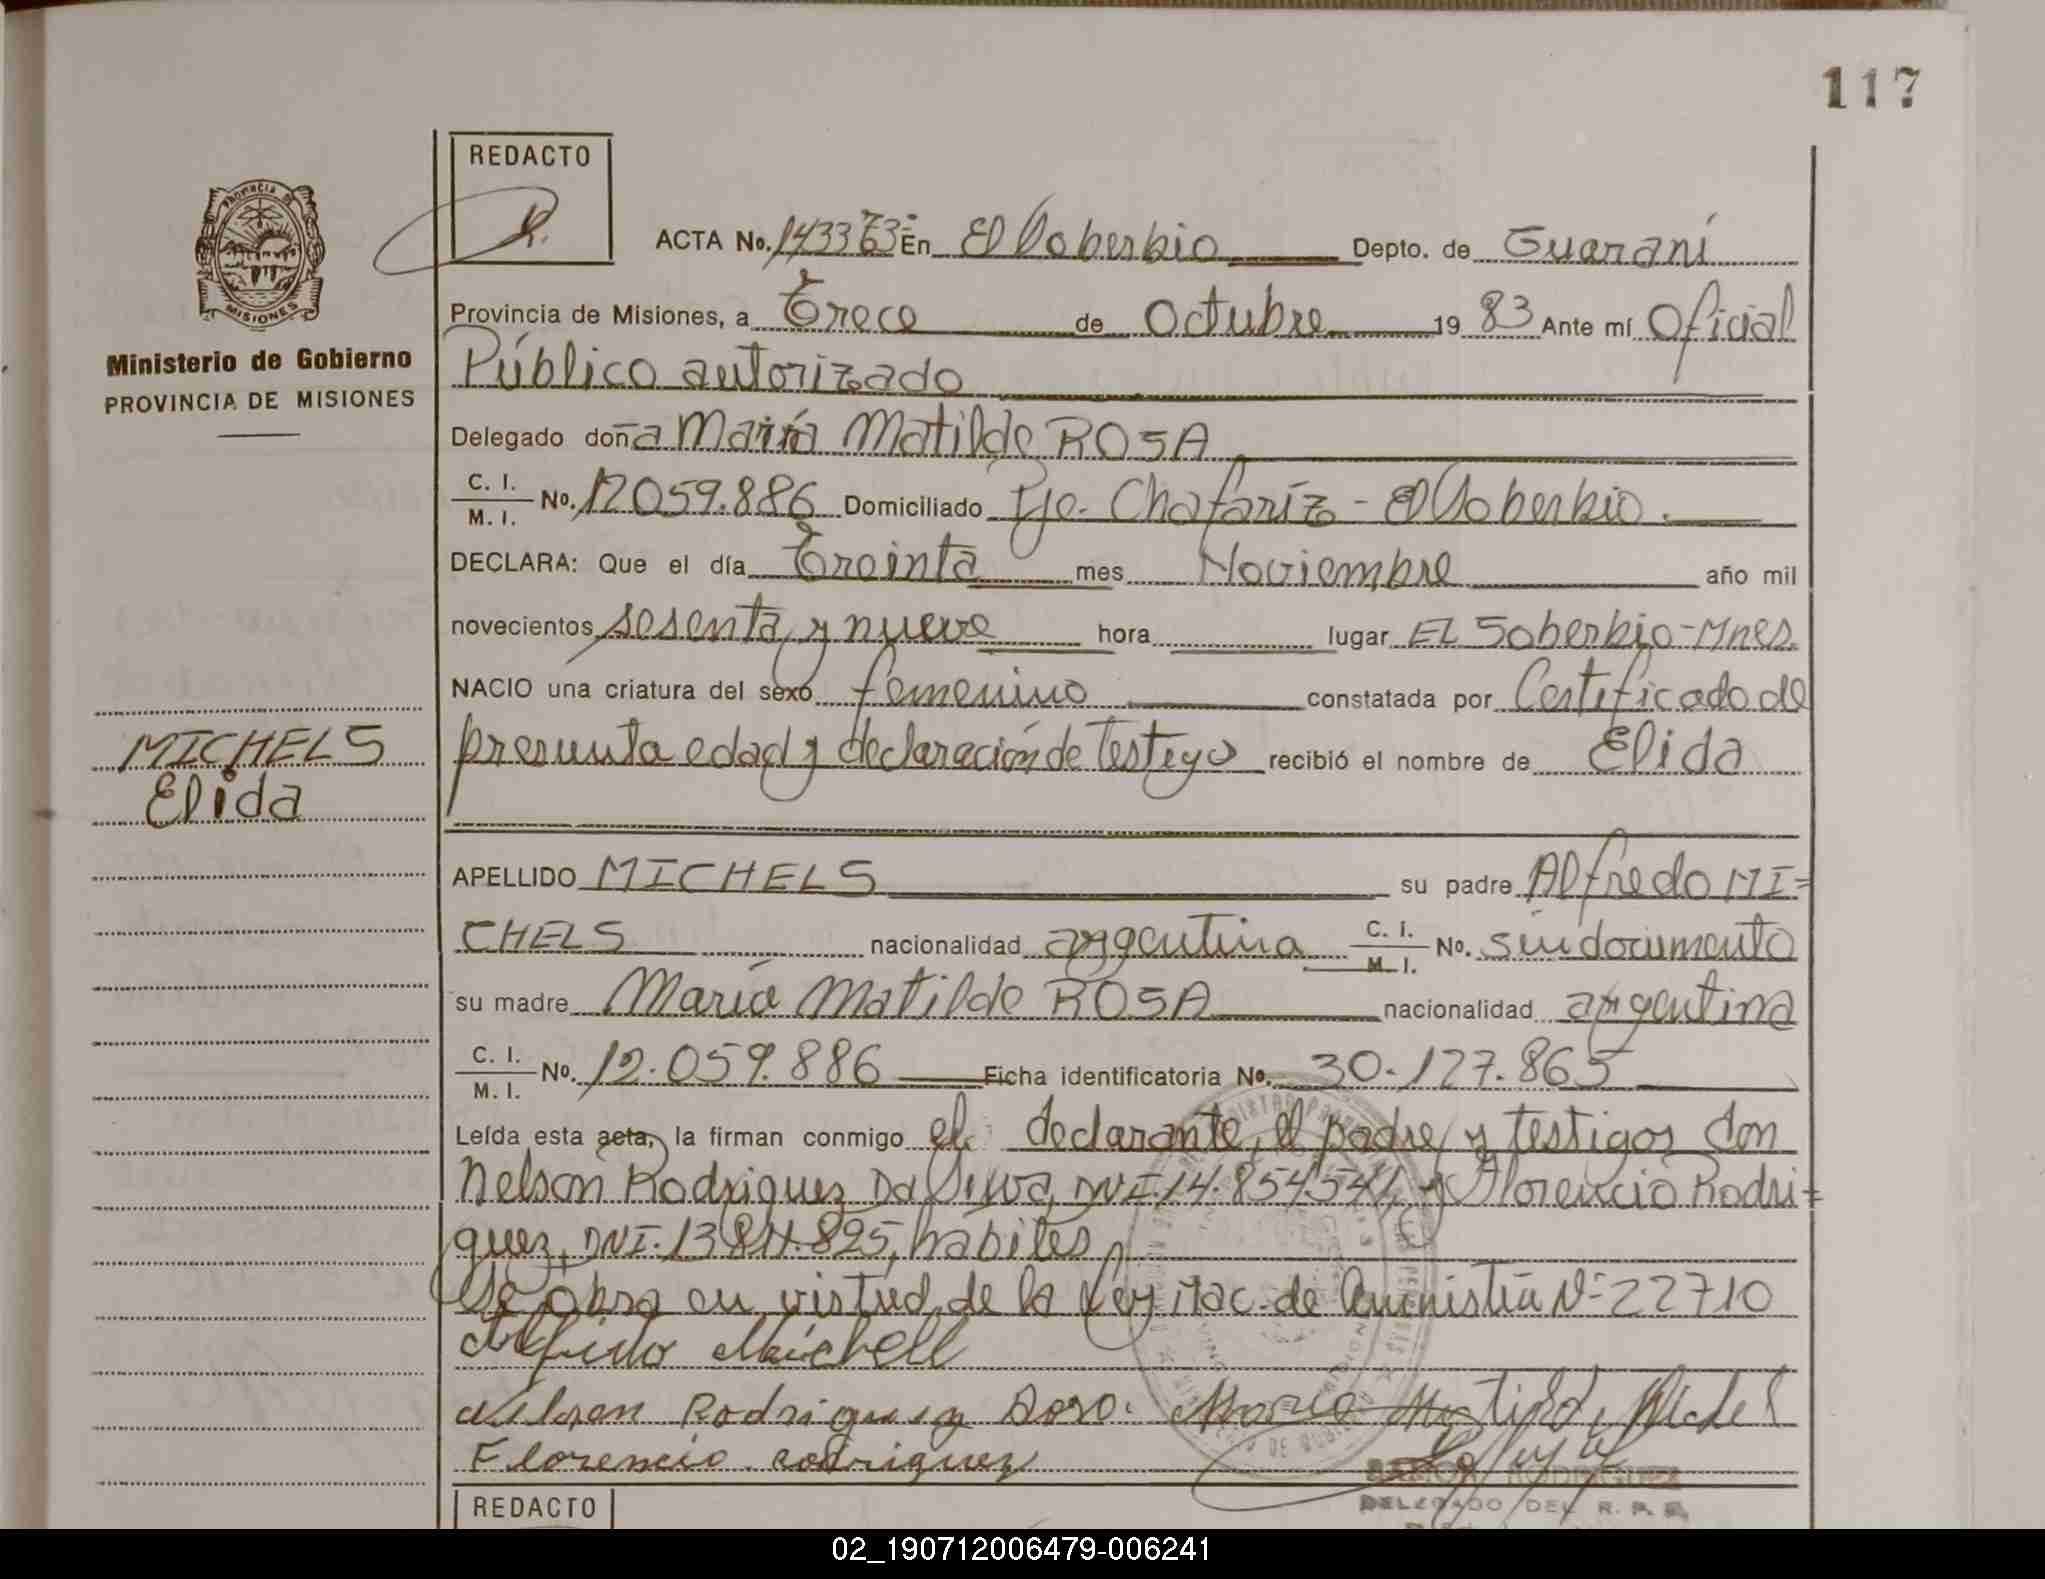 117
REDACTO
ACTA No. 143363 En El Soberbio Depto. de Guaraní
Provincia de Misiones, a Trece de Octubre 19 83 Ante mí Oficial
Público autorizado
Ministerio de Gobierno
PROVINCIA DE MISIONES
Delegado doña María Matilde ROSA
C. I.
M. I. No. 12059.886 Domiciliado Pje. Chafaríz - El Soberbio.
DECLARA: Que el día Treinta mes Noviembre año mil
novecientos sesenta y nueve hora lugar EL Soberbio-Mnes.
NACIO una criatura del sexo femenino constatada por Certificado de
presunta edad y declaración de testigo recibió el nombre de Elida
MICHELS
Elida
APELLIDO MICHELS su padre Alfredo MI=
CHELS nacionalidad argentina C. I.
M. I. No. sin documento
su madre María Matilde ROSA nacionalidad argentina
C. I.
M. I. No. 12.059.886 Ficha identificatoria No. 30.127.865
Leída esta acta, la firman conmigo el declarante, el padre y testigos don
Nelson Rodriguez Da Silva, DNI. 14.854541, y Florencio Rodri=
guez, DNI. 13811.825, habiles,
Se obra en virtud de la Ley Nac. de Amnistia Nº 22710
Alfredo Michell
Nelson Rodriguez
Maria Matilde
Florencio rodriguez
RAMON RODRIGUEZ
DELEGADO DEL R. P. P.
REDACTO
02_190712006479-006241